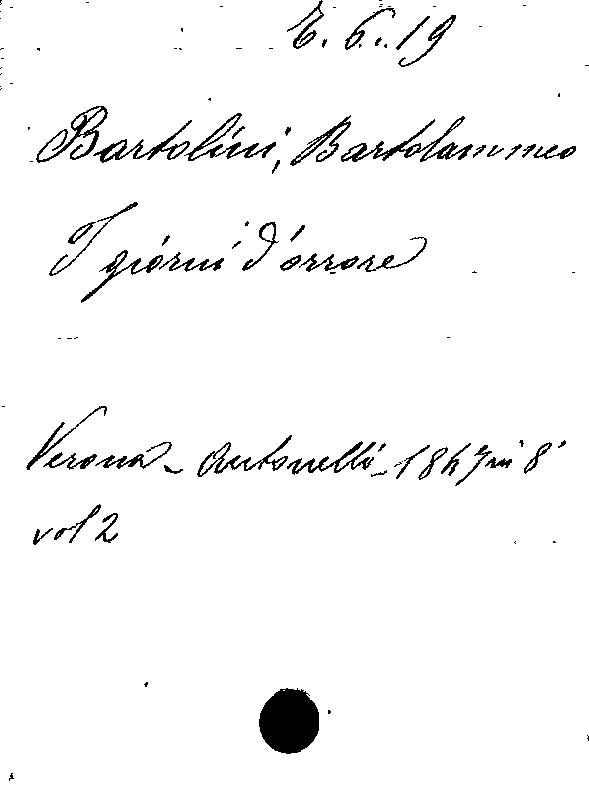 E. 6. 19
Bartolini, Bartolammeo
I giorni d'orrore
Verona - Antonelli - 1847 in 8°
vol 2